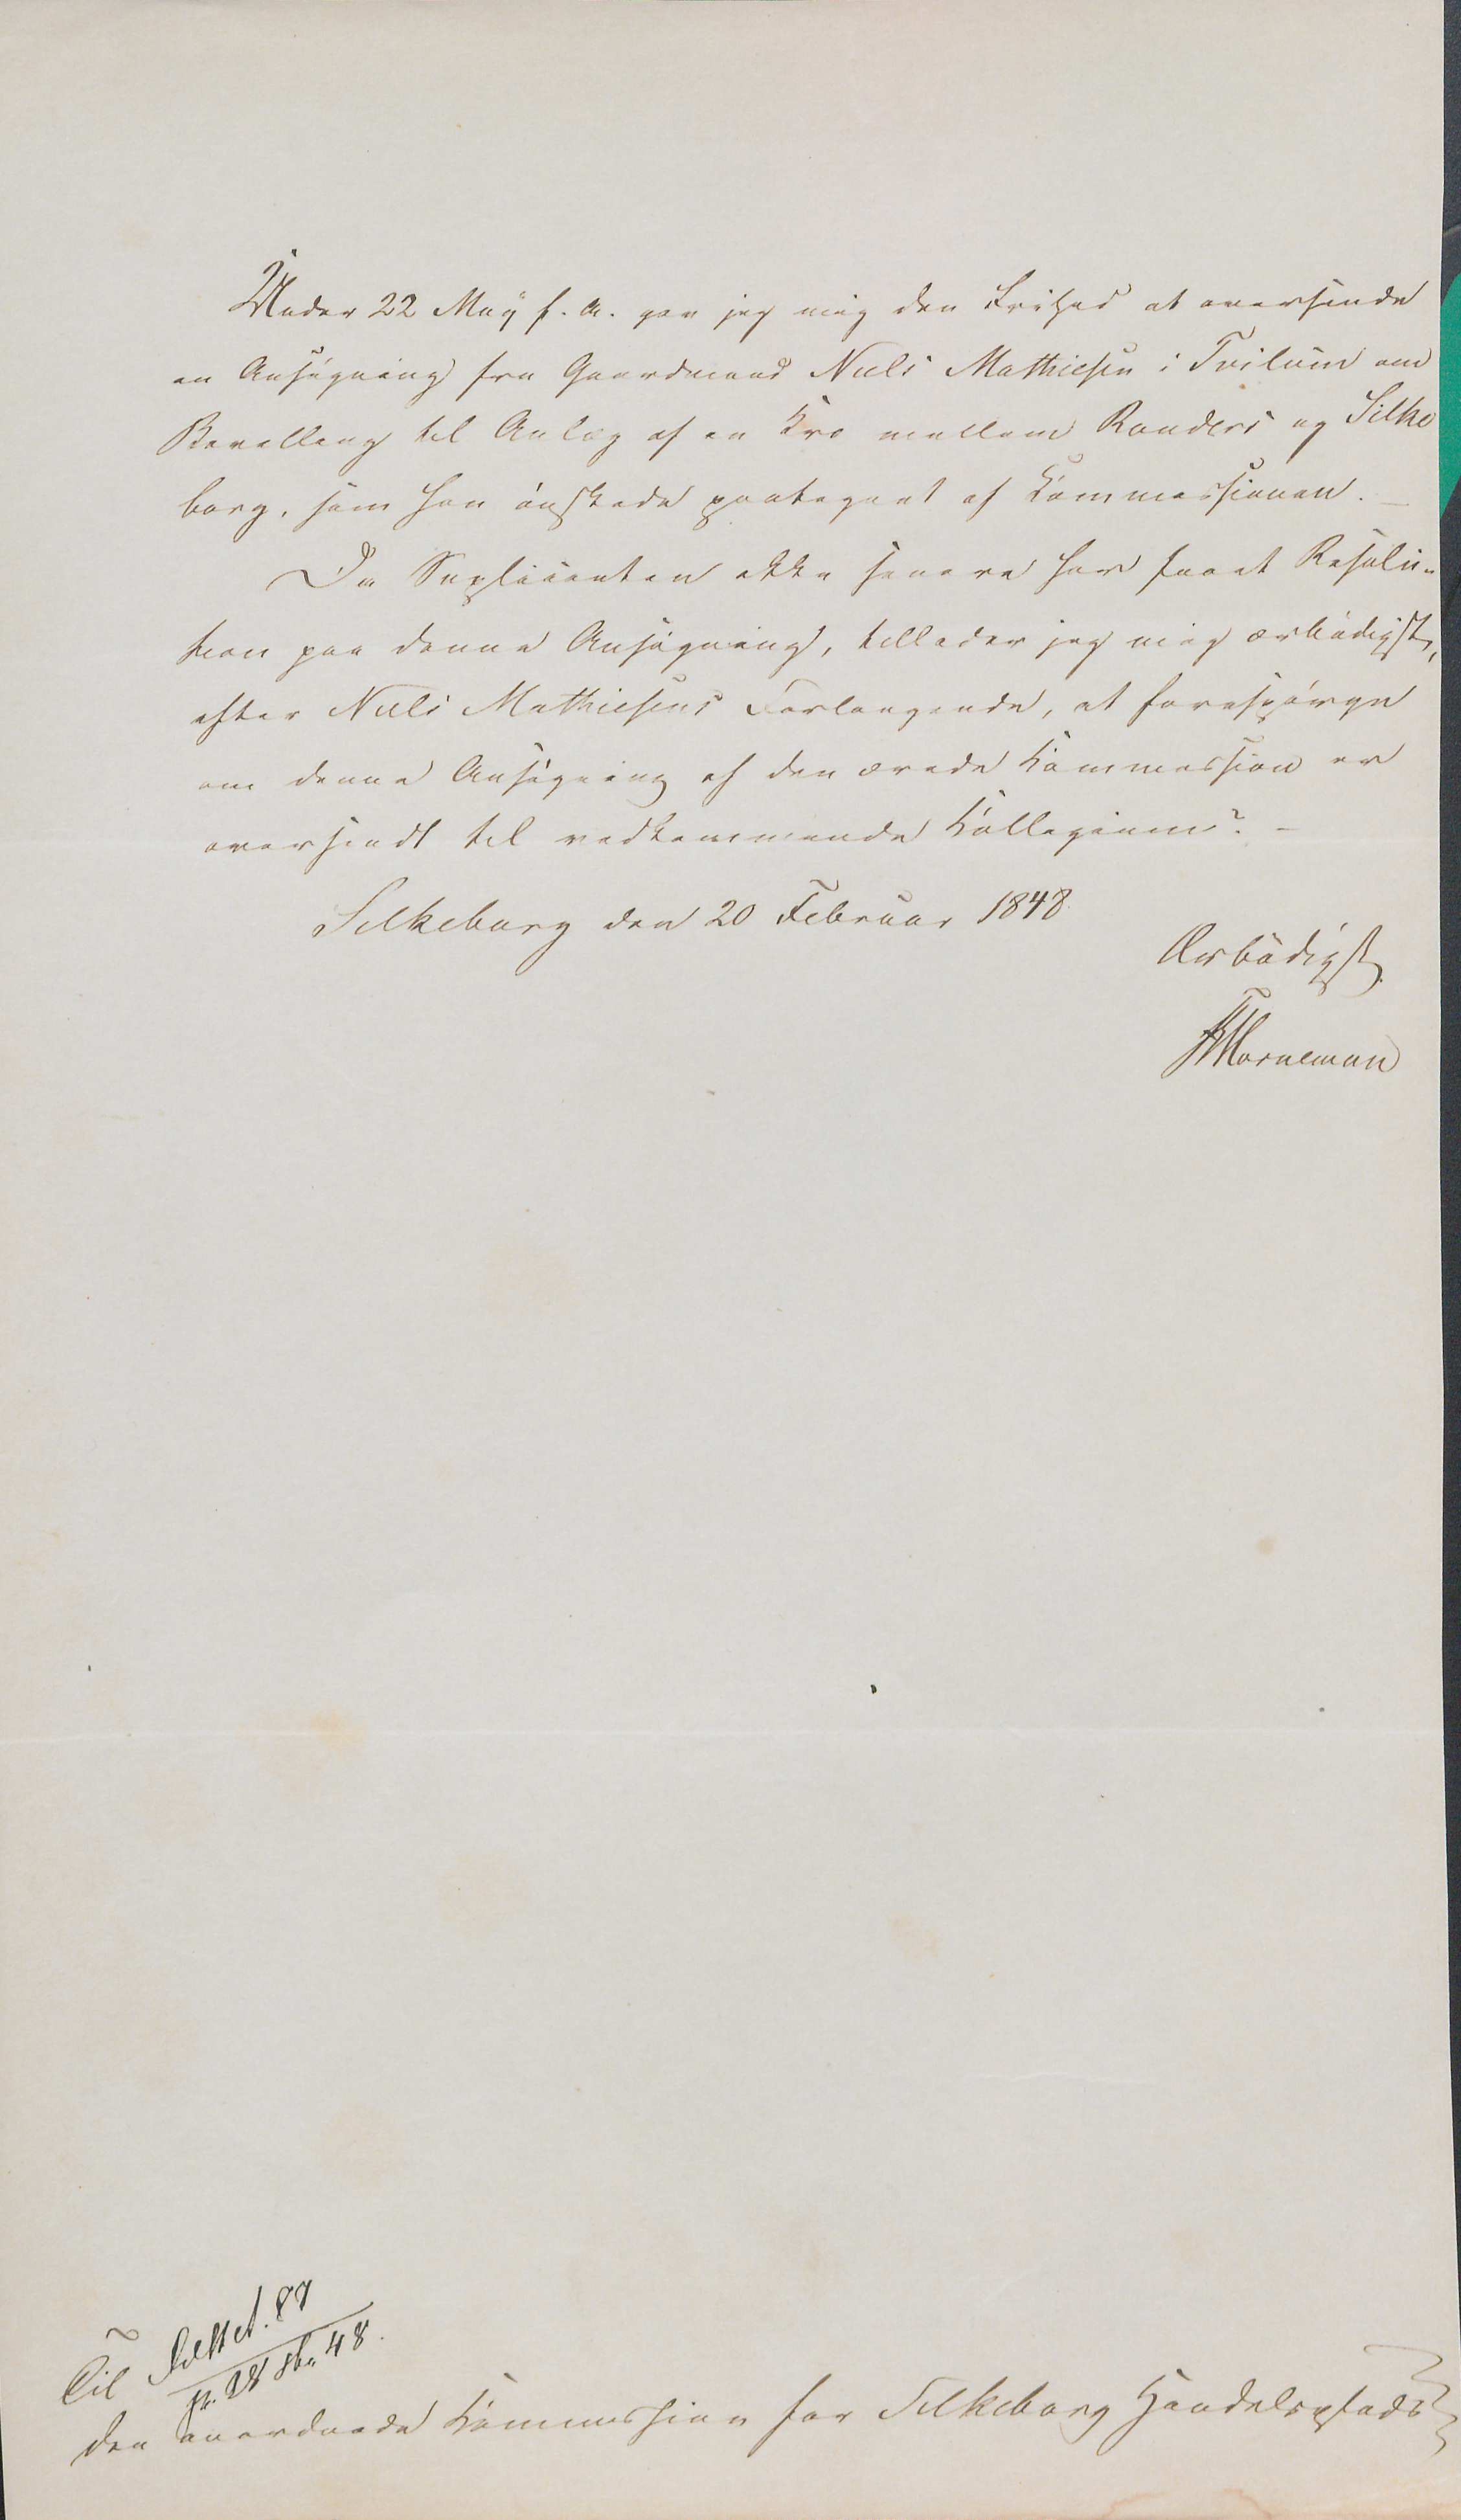 Under 22 May f. A. gav jeg mig den Frihed at oversende
en Ansøgning fra Gaardmand Niels Mathiesen i Tvilum om
Bevilling til Anlæg af en Kro mellem Randers og Silke
borg, som han ønskede paategnet af Kommissionen. –
Da Suplicanten ikke senere har faaet Resolu-
tion paa denne Ansøgning, tillader jeg mig ærbødigst,
efter Niels Mathiesens Forlangende, at forespørge
om denne Ansøgning af den ærede Kommission er
oversendt til vedkommende Kollegium? –
Silkeborg den 20 Februar 1848
Ærbødigst
Horneman
Til
87
28 48.
den anordnede Kommission for Silkeborg Handelsplads